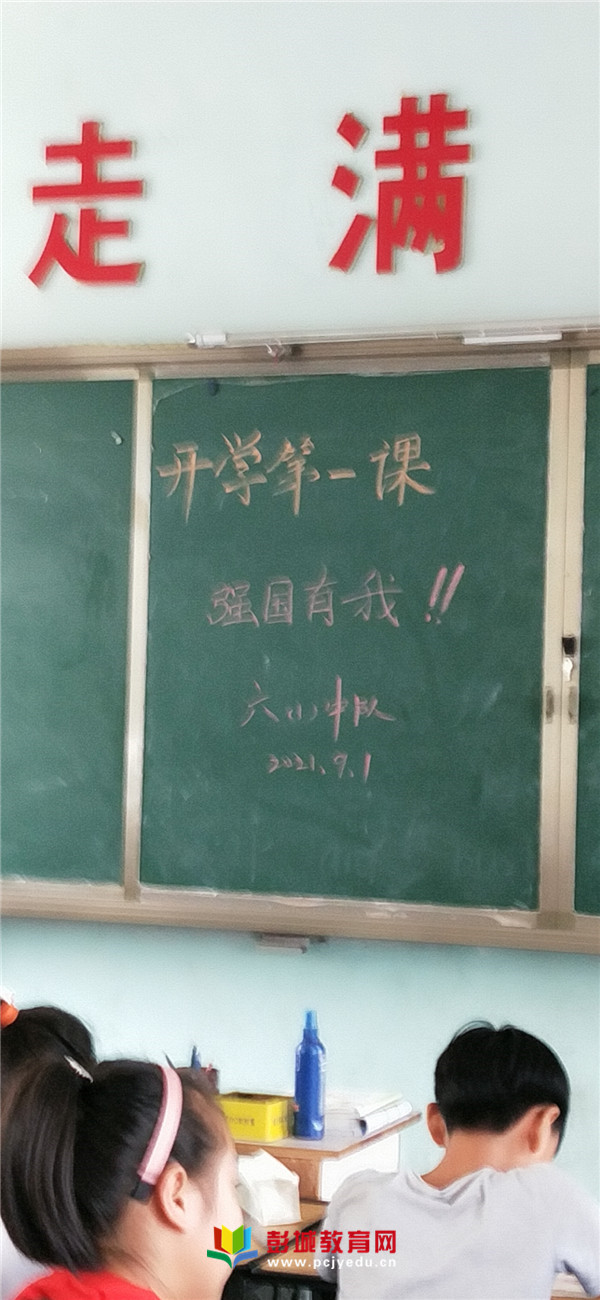 走 满
开学第一课
强国有我!!
六(1)中队
2021.9.1
彭城教育网
www.pcjyedu.cn